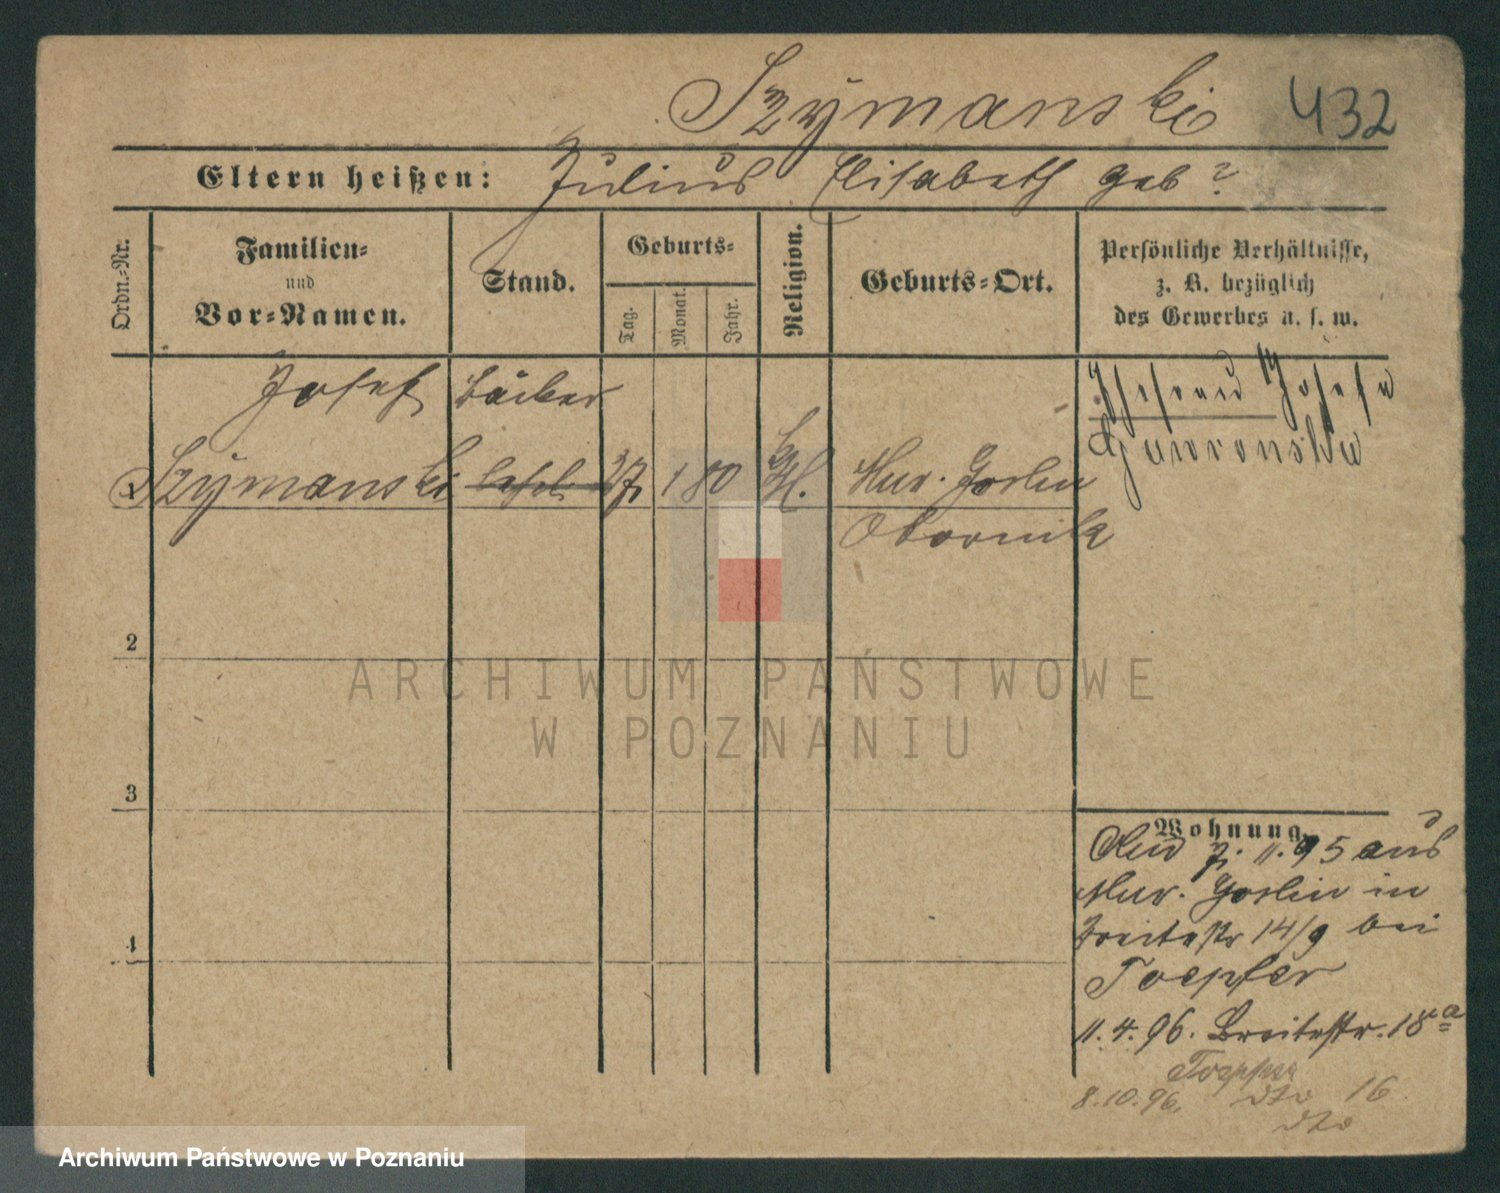 Szymanski 432
Eltern heißen: Julius Elisabeth geb?
Ordn.-Nr.
Familien-
und
Vor-Namen.
Stand.
Geburts-
Tag.
Monat.
Jahr.
Religion.
Geburts-Ort.
Persönliche Verhältnisse,
z. B. bezüglich
des Gewerbes u. s. w.
Josef
Szymanski
1 80
Mur. Goslin
Obornik
Ehefrau Josefa
Gawronska
2
3
4
Wohnung
11.95 aus
Mur. Goslin in
Breitestr 14/9 bei
Toepfer
11.4.96. Breitestr. 18a
Toepfer
8.10.96. dto 16
dto
ARCHIWUM PAŃSTWOWE
W POZNANIU
Archiwum Państwowe w Poznaniu